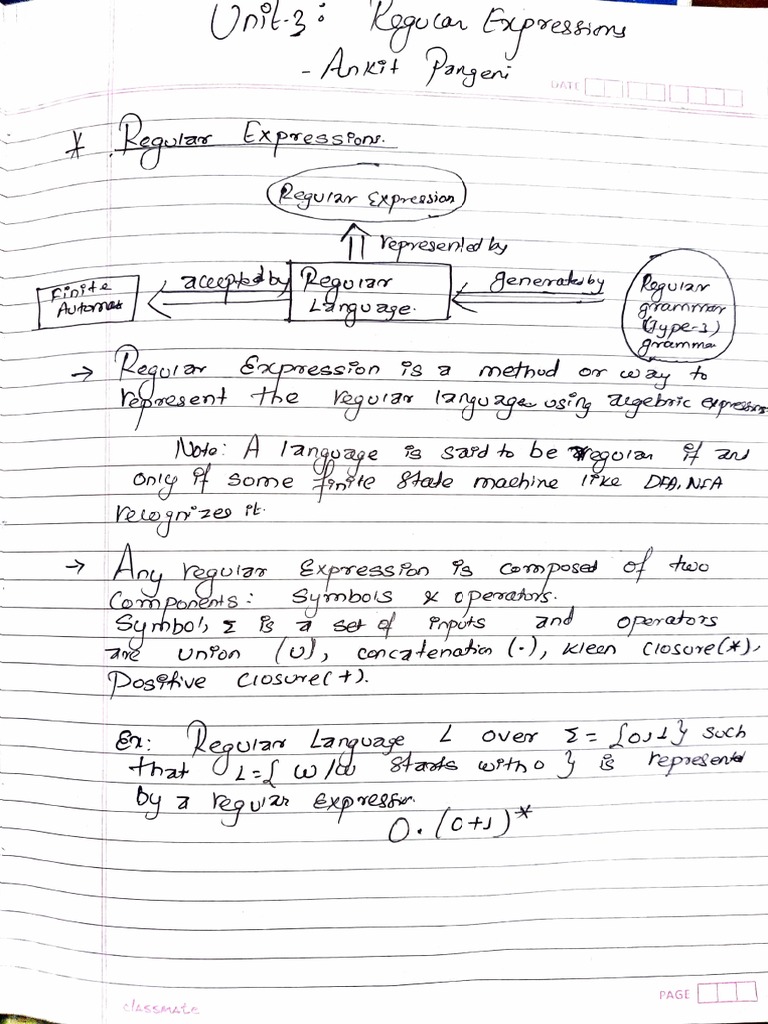 Unit-3: Regular Expressions
- Ankit Pangeni
DATE
* Regular Expressions.
Regular Expression
represented by
Finite
Automat
accepted by
Regular
Language.
generated by
Regular
grammar
(type-3)
gramma
→ Regular Expression is a method or way to
represent the regular language using algebric expressions
Note: A language is said to be regular if and
only if some finite state machine like DFA, NFA
recognizes it.
→ Any regular Expression is composed of two
Components: Symbols & operators.
Symbol, Σ is a set of inputs and operators
are union (U), concatenation (.), kleen closure(*),
Positive closure(+).
Ex: Regular Language L over Σ = {0,1} such
that L={ w/w starts with 0 } is represented
by a regular Expression.
0.(0+1)*
classmate
PAGE